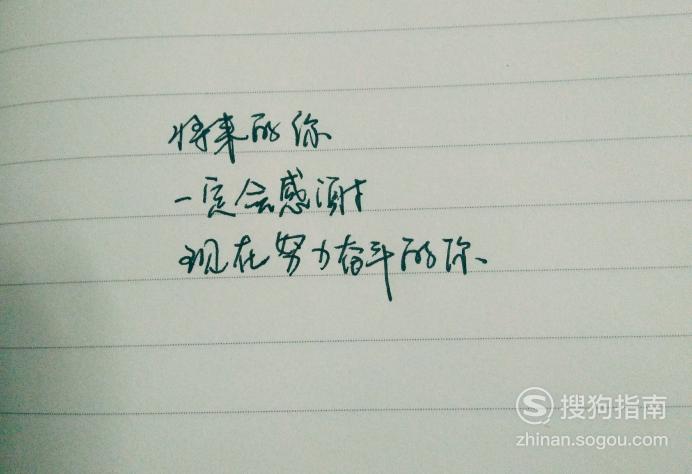 将来的你
一定会感谢
现在努力奋斗的你
搜狗指南
zhinan.sogou.com